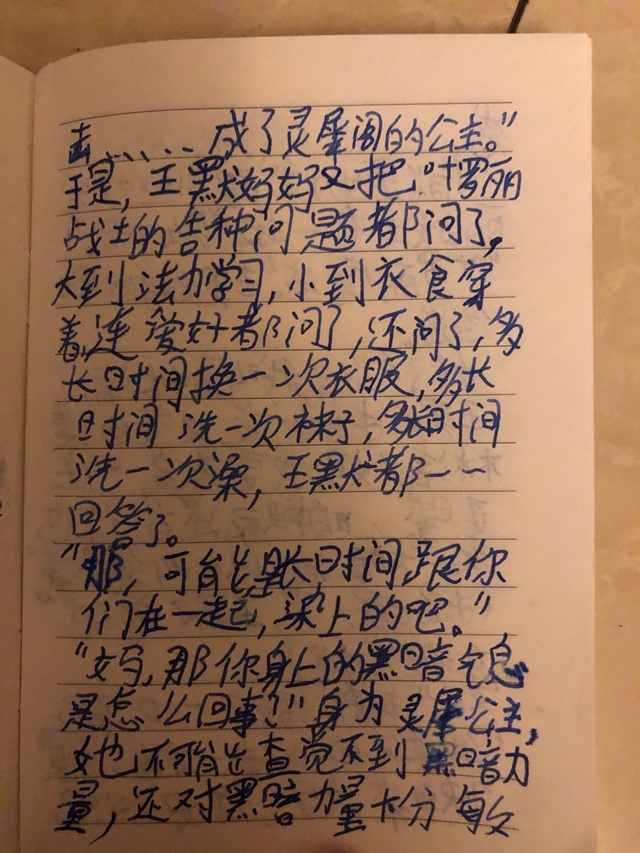 去、、、、、成了灵犀阁的公主。”
于是，王默妈妈又把叶罗丽
战士的各种问题都问了，
大到法力学习，小到衣食穿
着，连爱好都问了，还问了，多
长时间换一次衣服，多长
时间洗一次袜子，多长时间
洗一次澡，王默都一一
回答了。
“那，可能是长时间跟你
们在一起，染上的吧。”
“妈，那你身上的黑暗气息
是怎么回事？”身为灵犀公主，
她不可能查觉不到黑暗力
量，还对黑暗力量十分敏